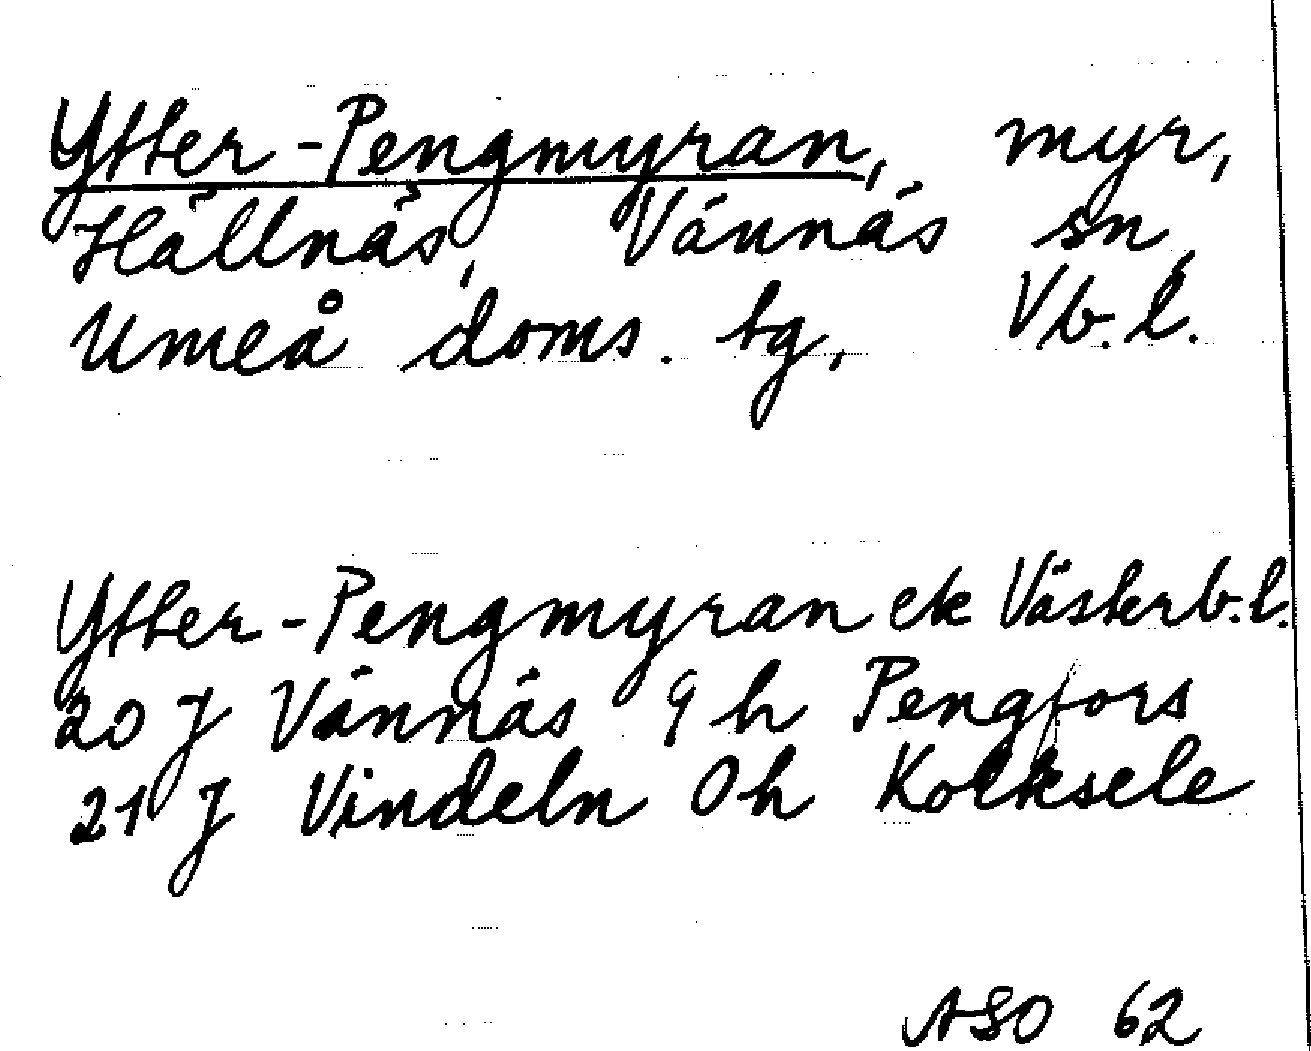 Ytter-Pengmyran, myr,
Hällnäs, Vännäs sn,
Umeå doms. tg, Vb.l.
Ytter-Pengmyran ek Västerb.l.
20 J Vännäs 9 h Pengfors
21 J Vindeln 0h Kolksele
ASO 62